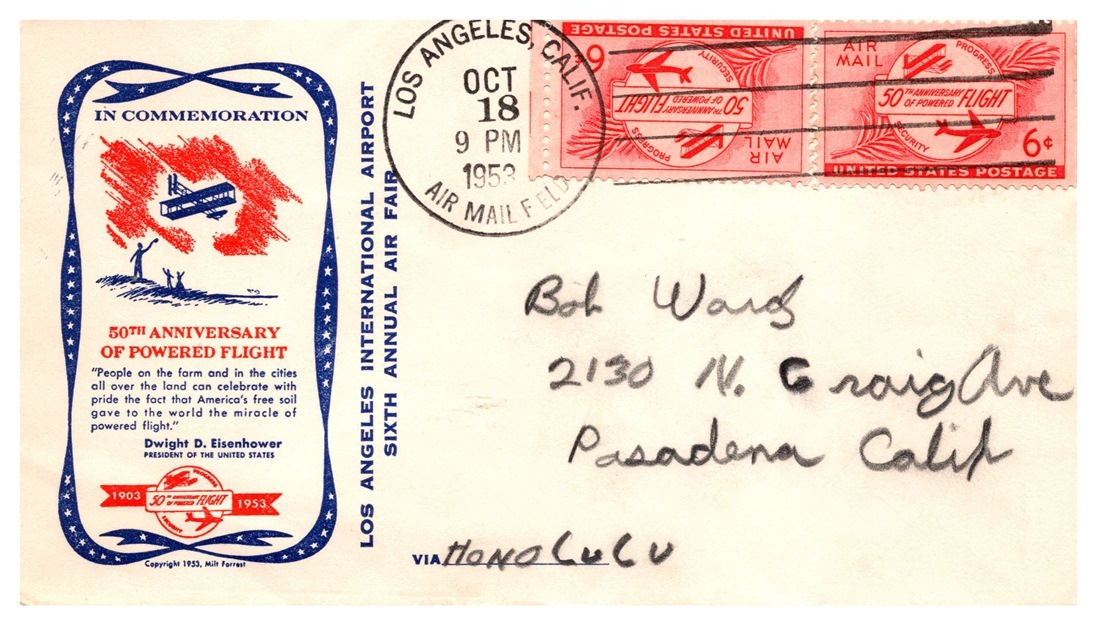 IN COMMEMORATION
50TH ANNIVERSARY
OF POWERED FLIGHT
"People on the farm and in the cities
all over the land can celebrate with
pride the fact that America's free soil
gave to the world the miracle of
powered flight."
Dwight D. Eisenhower
PRESIDENT OF THE UNITED STATES
1903
PROGRESS
50TH ANNIVERSARY
OF POWERED FLIGHT
SECURITY
1953
Copyright 1953, Milt Forrest
LOS ANGELES INTERNATIONAL AIRPORT
SIXTH ANNUAL AIR FAIR
LOS ANGELES, CALIF.
OCT
18
9 PM
1953
AIR MAIL FIELD
UNITED STATES POSTAGE
6¢
SECURITY
50TH ANNIVERSARY
OF POWERED FLIGHT
PROGRESS
AIR
MAIL
AIR
MAIL
PROGRESS
50TH ANNIVERSARY
OF POWERED FLIGHT
SECURITY
6¢
UNITED STATES POSTAGE
Bob Ward
2130 N. Craig Ave
Pasadena Calif
VIA HONOLULU